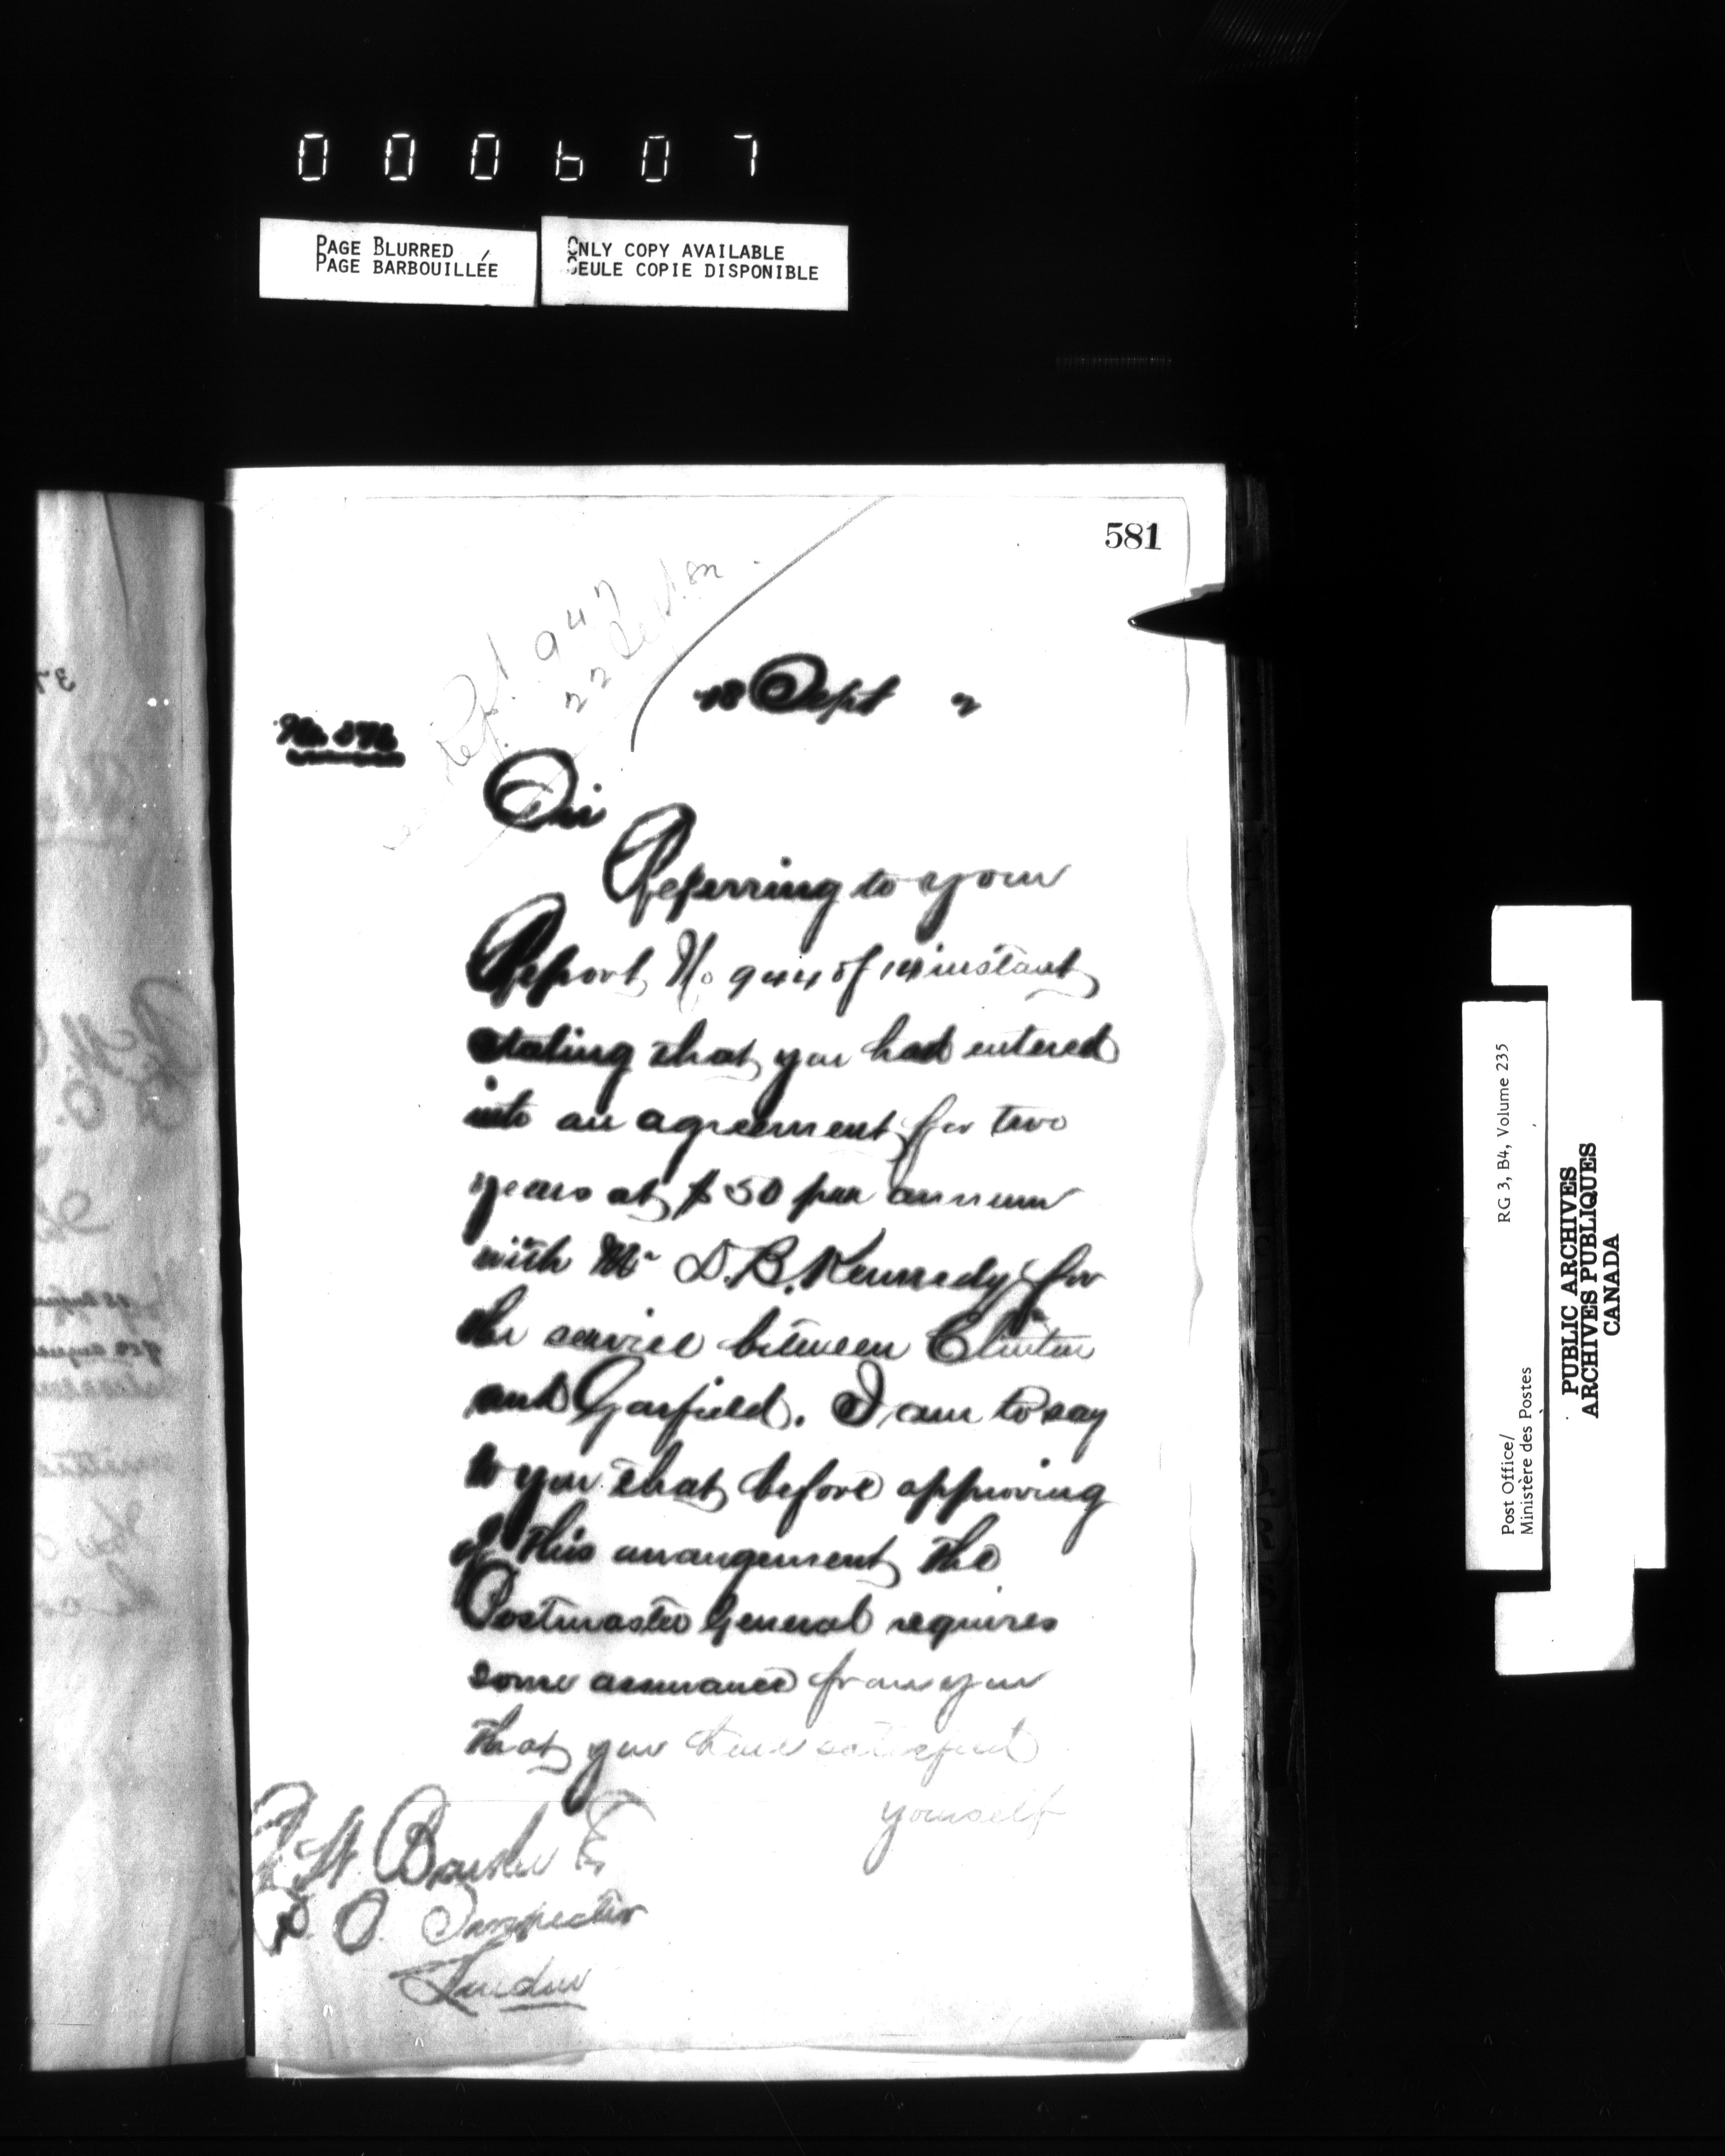 000607
PAGE BLURRED
PAGE BARBOUILLÉE
ONLY COPY AVAILABLE
SEULE COPIE DISPONIBLE
581
18 Sept 2
No 576
Sir
Referring to your
Report No 944 of 14 instant
stating that you had entered
into an agreement for two
years at $50 per annum
with Mr D.B. Kennedy for
the service between Clinton
and Garfield. I am to say
to you that before approving
of this arrangement the
Postmaster General requires
some assurance from you
that you have satisfied
yourself
R. W. Barker E
P. O. Inspector
London
RG 3, B4, Volume 235
Post Office/
Ministère des Postes
PUBLIC ARCHIVES
ARCHIVES PUBLIQUES
CANADA